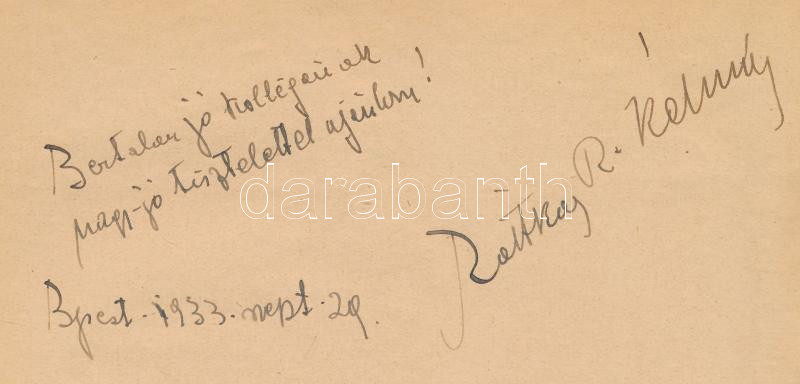 Bertalan jó kollégának
nagy-jó tisztelettel ajánlom!
R. Kálmán
Bpest. 1933. szept. 29.
darabanth